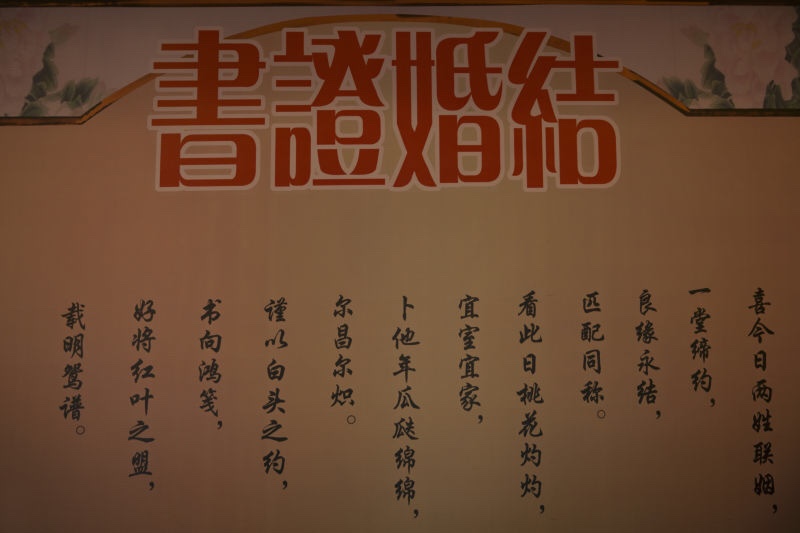 結婚證書
喜今日两姓联姻，
一堂缔约，
良缘永结，
匹配同称。
看此日桃花灼灼，
宜室宜家，
卜他年瓜瓞绵绵，
尔昌尔炽。
谨以白头之约，
书向鸿笺，
好将红叶之盟，
载明鸳谱。